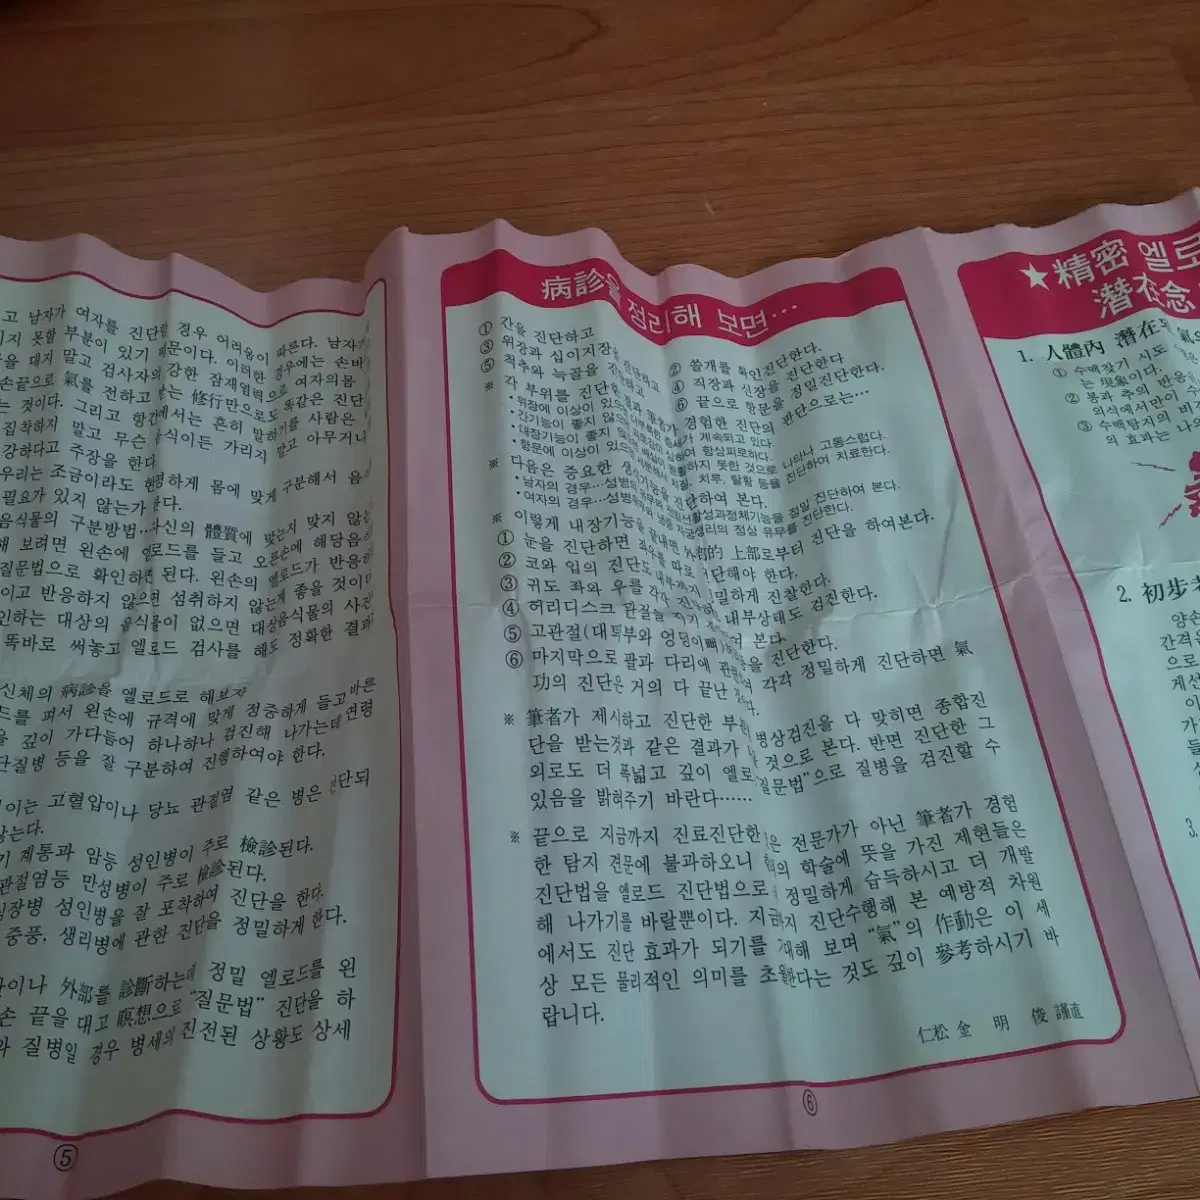 고 남자가 여자를 진단할 경우 어려움이 따른다. 남자가
지지 못할 부분이 있기 때문이다. 이러한 경우에는 손바
을 대지 말고 검사자의 강한 잠재염력으로 여자의 몸
손끝으로 氣를 전하고 받는 修行만으로도 똑같은 진단
는 것이다. 그리고 항간에서는 흔히 말하기를 사람은
집착하지 말고 무슨 음식이든 가리지 말고 아무거나
강하다고 주장을 한다
우리는 조금이라도 현명하게 몸에 맞게 구분해서 음
필요가 있지 않는가 한다.
음식물의 구분방법…자신의 體質에 맞는지 맞지 않는
해 보려면 왼손에 엘로드를 들고 오른손에 해당음식
질문법으로 확인하면 된다. 왼손의 엘로드가 반응하
이고 반응하지 않으면 섭취하지 않는게 좋을 것이다
인하는 대상의 음식물이 없으면 대상음식물의 사진
똑바로 써놓고 엘로드 검사를 해도 정확한 결과
신체의 病診을 엘로드로 해보자
드를 펴서 왼손에 규격에 맞게 정중하게 들고 바른
을 깊이 가다듬어 하나하나 검진해 나가는데 연령
단질병 등을 잘 구분하여 진행하여야 한다.
이는 고혈압이나 당뇨 관절염 같은 병은 진단되
않는다.
기 계통과 암등 성인병이 주로 檢診된다.
관절염등 만성병이 주로 檢診된다.
심장병 성인병을 잘 포착하여 진단을 한다.
중풍, 생리병에 관한 진단을 정밀하게 한다.
이나 外部를 診斷하는데 정밀 엘로드를 왼
손 끝을 대고 瞑想으로 "질문법" 진단을 하
와 질병일 경우 병세의 진전된 상황도 상세
⑤
病診을 정리해 보면…
① 간을 진단하고 ② 쓸개를 확인진단한다.
③ 위장과 십이지장을 진단하고 ④ 직장과 신장을 진단한다
⑤ 척추와 늑골을 진단하고 ⑥ 끝으로 항문을 정밀진단한다.
※ 각 부위를 진단한 결과 筆者가 경험한 진단의 판단으로는…
•위장에 이상이 있으면 계속되고 있다.
•간기능이 좋지 않으면 항상피로하다.
•대장기능이 좋지 않으면 원활하지 못한 것으로 나타나 고통스럽다.
•항문에 이상이 있으면 치질, 치루, 탈황 등을 진단하여 치료한다.
※ 다음은 중요한 생식기능을 진단하여 본다.
•남자의 경우…성병유무와 활성과정체기능을 정밀 진단하여 본다.
•여자의 경우…성병유무와 생리의 정상 유무를 진단한다.
※ 이렇게 내장기능을 끝내면 外部的 上部로부터 진단을 하여본다.
① 눈을 진단하면 좌우를 따로 진단해야 한다.
② 코와 입의 진단도 내부까지 정밀하게 진찰한다.
③ 귀도 좌와 우를 각각 진단하여 내부상태도 검진한다.
④ 허리디스크 관절을 하여 본다.
⑤ 고관절(대퇴부와 엉덩이뼈)등을 진단한다.
⑥ 마지막으로 팔과 다리에 관한 각각 정밀하게 진단하면 氣
功의 진단은 거의 다 끝난 것이다.
※ 筆者가 제시하고 진단한 부분의 병상검진을 다 맞히면 종합진
단을 받는것과 같은 결과가 나온 것으로 본다. 반면 진단한 그
외로도 더 폭넓고 깊이 엘로드"질문법"으로 질병을 검진할 수
있음을 밝혀주기 바란다……
※ 끝으로 지금까지 진료진단한 것은 전문가가 아닌 筆者가 경험
한 탐지 견문에 불과하오니 학술에 뜻을 가진 제현들은
진단법을 엘로드 진단법으로 정밀하게 습득하시고 더 개발
해 나가기를 바랄뿐이다. 지금까지 진단수행해 본 예방적 차원
에서도 진단 효과가 되기를 기대해 보며 "氣"의 作動은 이 세
상 모든 물리적인 의미를 초월한다는 것도 깊이 參考하시기 바
랍니다.
仁松 金 明 俊 謹直
⑥
★精密 엘로
潛在念
1. 人體內 潛在된 氣의
① 수맥찾기 시도
는 現象이다.
② 봉과 추의 반응은
의식에서만이 수
③ 수맥탐지의 비
의 효과는 나의
2. 初步者
양손
간격을
으로
게선
이
가
들
선
3.